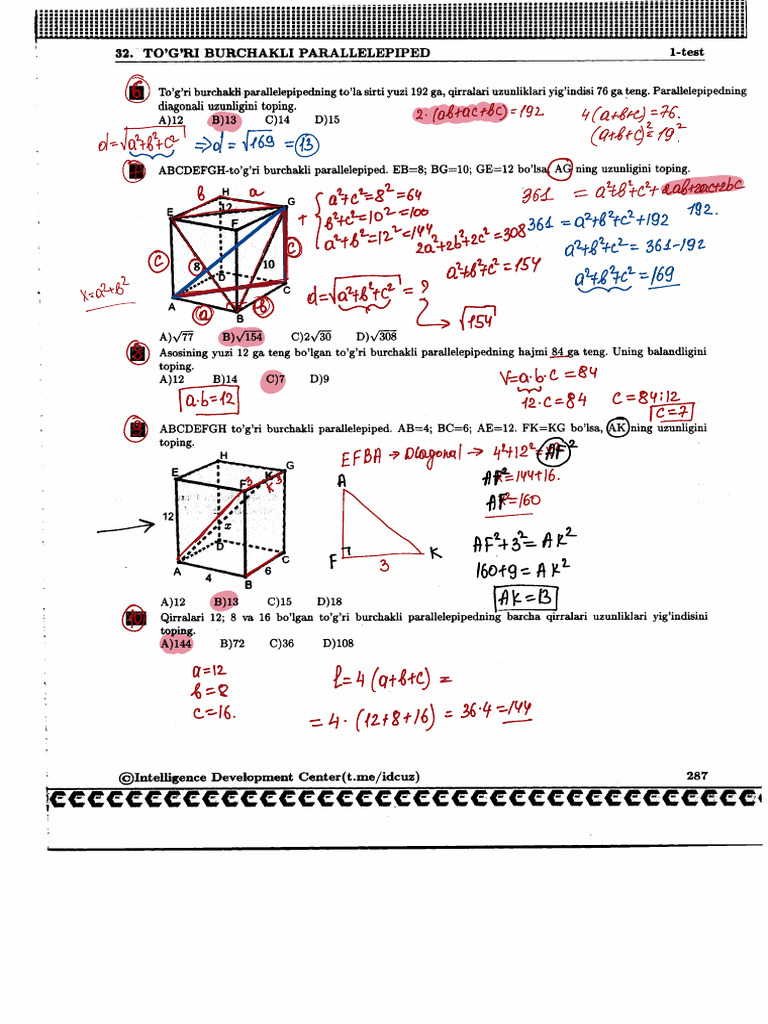 32. TO'G'RI BURCHAKLI PARALLELEPIPED 1-test
6 To'g'ri burchakli parallelepipedning to'la sirti yuzi 192 ga, qirralari uzunliklari yig'indisi 76 ga teng. Parallelepipedning
diagonali uzunligini toping.
A)12 B)13 C)14 D)15
2·(ab+ac+bc)=192
4(a+b+c)=76.
(a+b+c)²=19²
d=√a²+b²+c² ⇒ d=√169=13
ABCDEFGH-to'g'ri burchakli parallelepiped. EB=8; BG=10; GE=12 bo'lsa, AG ning uzunligini toping.
361 = a²+b²+c²+2ab+2ac+2bc
192.
361=a²+b²+c²+192
a²+b²+c²=361-192
a²+b²+c²=169
b H a
E 12 G
F
c 8 10 c
D
A C
a B b
x=a²+b²
+ { a²+c²=8²=64
b²+c²=10²=100
a²+b²=12²=144
2a²+2b²+2c²=308
a²+b²+c²=154
d=√a²+b²+c²=?
√154
A)√77 B)√154 C)2√30 D)√308
8 Asosining yuzi 12 ga teng bo'lgan to'g'ri burchakli parallelepipedning hajmi 84 ga teng. Uning balandligini
toping.
A)12 B)14 C)7 D)9
a·b=12
V=a·b·c=84
12·c=84
c=84:12
c=7
9 ABCDEFGH to'g'ri burchakli parallelepiped. AB=4; BC=6; AE=12. FK=KG bo'lsa, AK ning uzunligini
toping.
EFBA → Diagonal → 4²+12²=AF²
AF²=144+16.
AF²=160
H
E K G
F 3 K 3
12
x
D
A C
4 6
B
A
F 3 K
AF²+3²=AK²
160+9=AK²
AK=13
A)12 B)13 C)15 D)18
10 Qirralari 12; 8 va 16 bo'lgan to'g'ri burchakli parallelepipedning barcha qirralari uzunliklari yig'indisini
toping.
A)144 B)72 C)36 D)108
a=12
b=8
c=16.
l=4(a+b+c)=
=4·(12+8+16)=36·4=144
©Intelligence Development Center(t.me/idcuz) 287